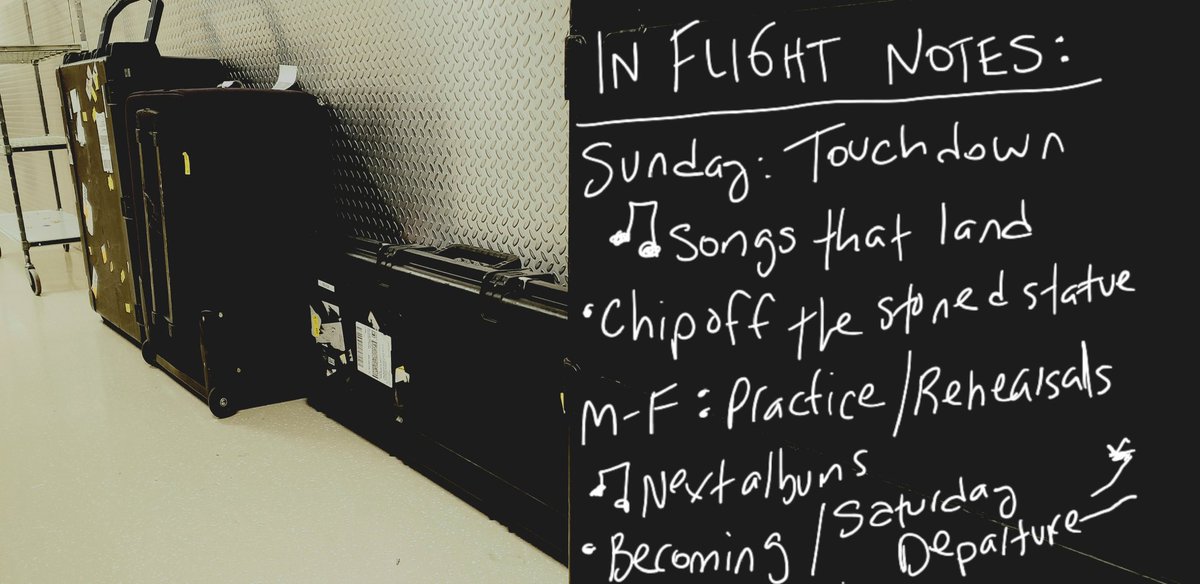 IN FLIGHT NOTES:
Sunday: Touchdown
Songs that land
•Chip off the stoned statue
M-F: Practice/Rehearsals
Next albums
•Becoming/Saturday
Departure